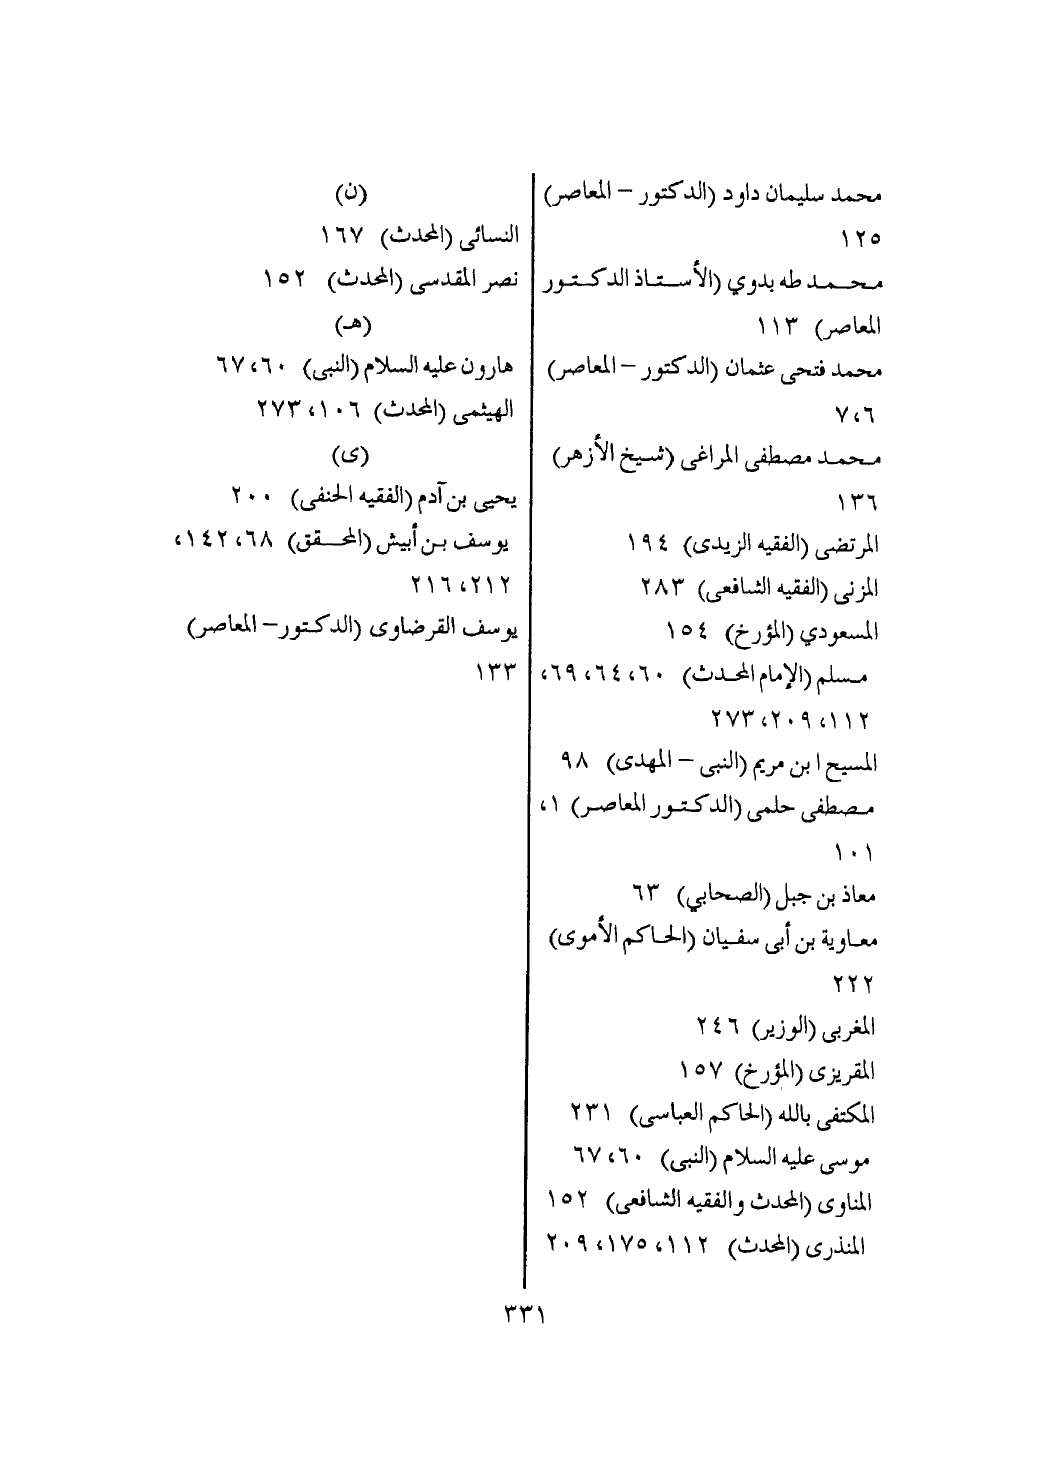 محمد سليمان داود (الدكتور – المعاصر)
١٢٥
محمد طه بدوي (الأستاذ الدكتور
المعاصر) ١١٣
محمد فتحى عثمان (الدكتور – المعاصر)
٧،٦
محمد مصطفى المراغى (شيخ الأزهر)
١٣٦
المرتضى (الفقيه الزيدى) ١٩٤
المزنى (الفقيه الشافعى) ٢٨٣
المسعودي (المؤرخ) ١٥٤
مسلم (الإمام المحدث) ٦٠، ٦٤، ٦٩،
١١٢، ٢٠٩، ٢٧٣
المسيح ابن مريم (النبى – المهدى) ٩٨
مصطفى حلمى (الدكتور المعاصر) ١،
١٠١
معاذ بن جبل (الصحابي) ٦٣
معاوية بن أبى سفيان (الحاكم الأموى)
٢٢٢
المغربى (الوزير) ٢٤٦
المقريزى (المؤرخ) ١٥٧
المكتفى بالله (الحاكم العباسى) ٢٣١
موسى عليه السلام (النبى) ٦٠، ٦٧
المناوى (المحدث والفقيه الشافعى) ١٥٢
المنذرى (المحدث) ١١٢، ١٧٥، ٢٠٩
(ن)
النسائى (المحدث) ١٦٧
نصر المقدسى (المحدث) ١٥٢
(هـ)
هارون عليه السلام (النبى) ٦٠، ٦٧
الهيثمى (المحدث) ١٠٦، ٢٧٣
(ى)
يحيى بن آدم (الفقيه الحنفى) ٢٠٠
يوسف بن أبيش (المحقق) ٦٨، ١٤٢،
٢١٢، ٢١٦
يوسف القرضاوى (الدكتور– المعاصر)
١٣٣
٣٣١